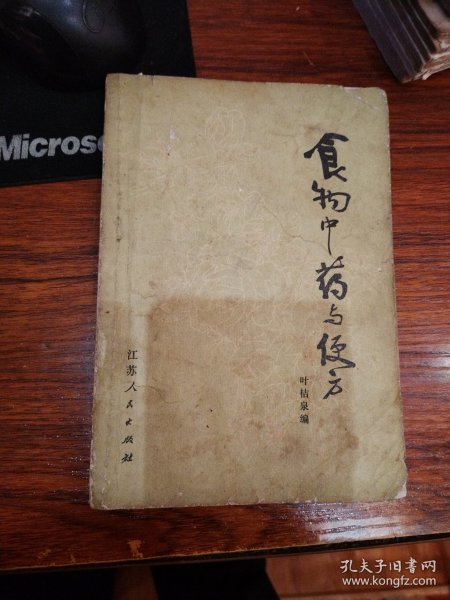 Micros
食物中药与便方
叶桔泉编
江苏人民出版社
孔夫子旧书网
www.kongfz.com